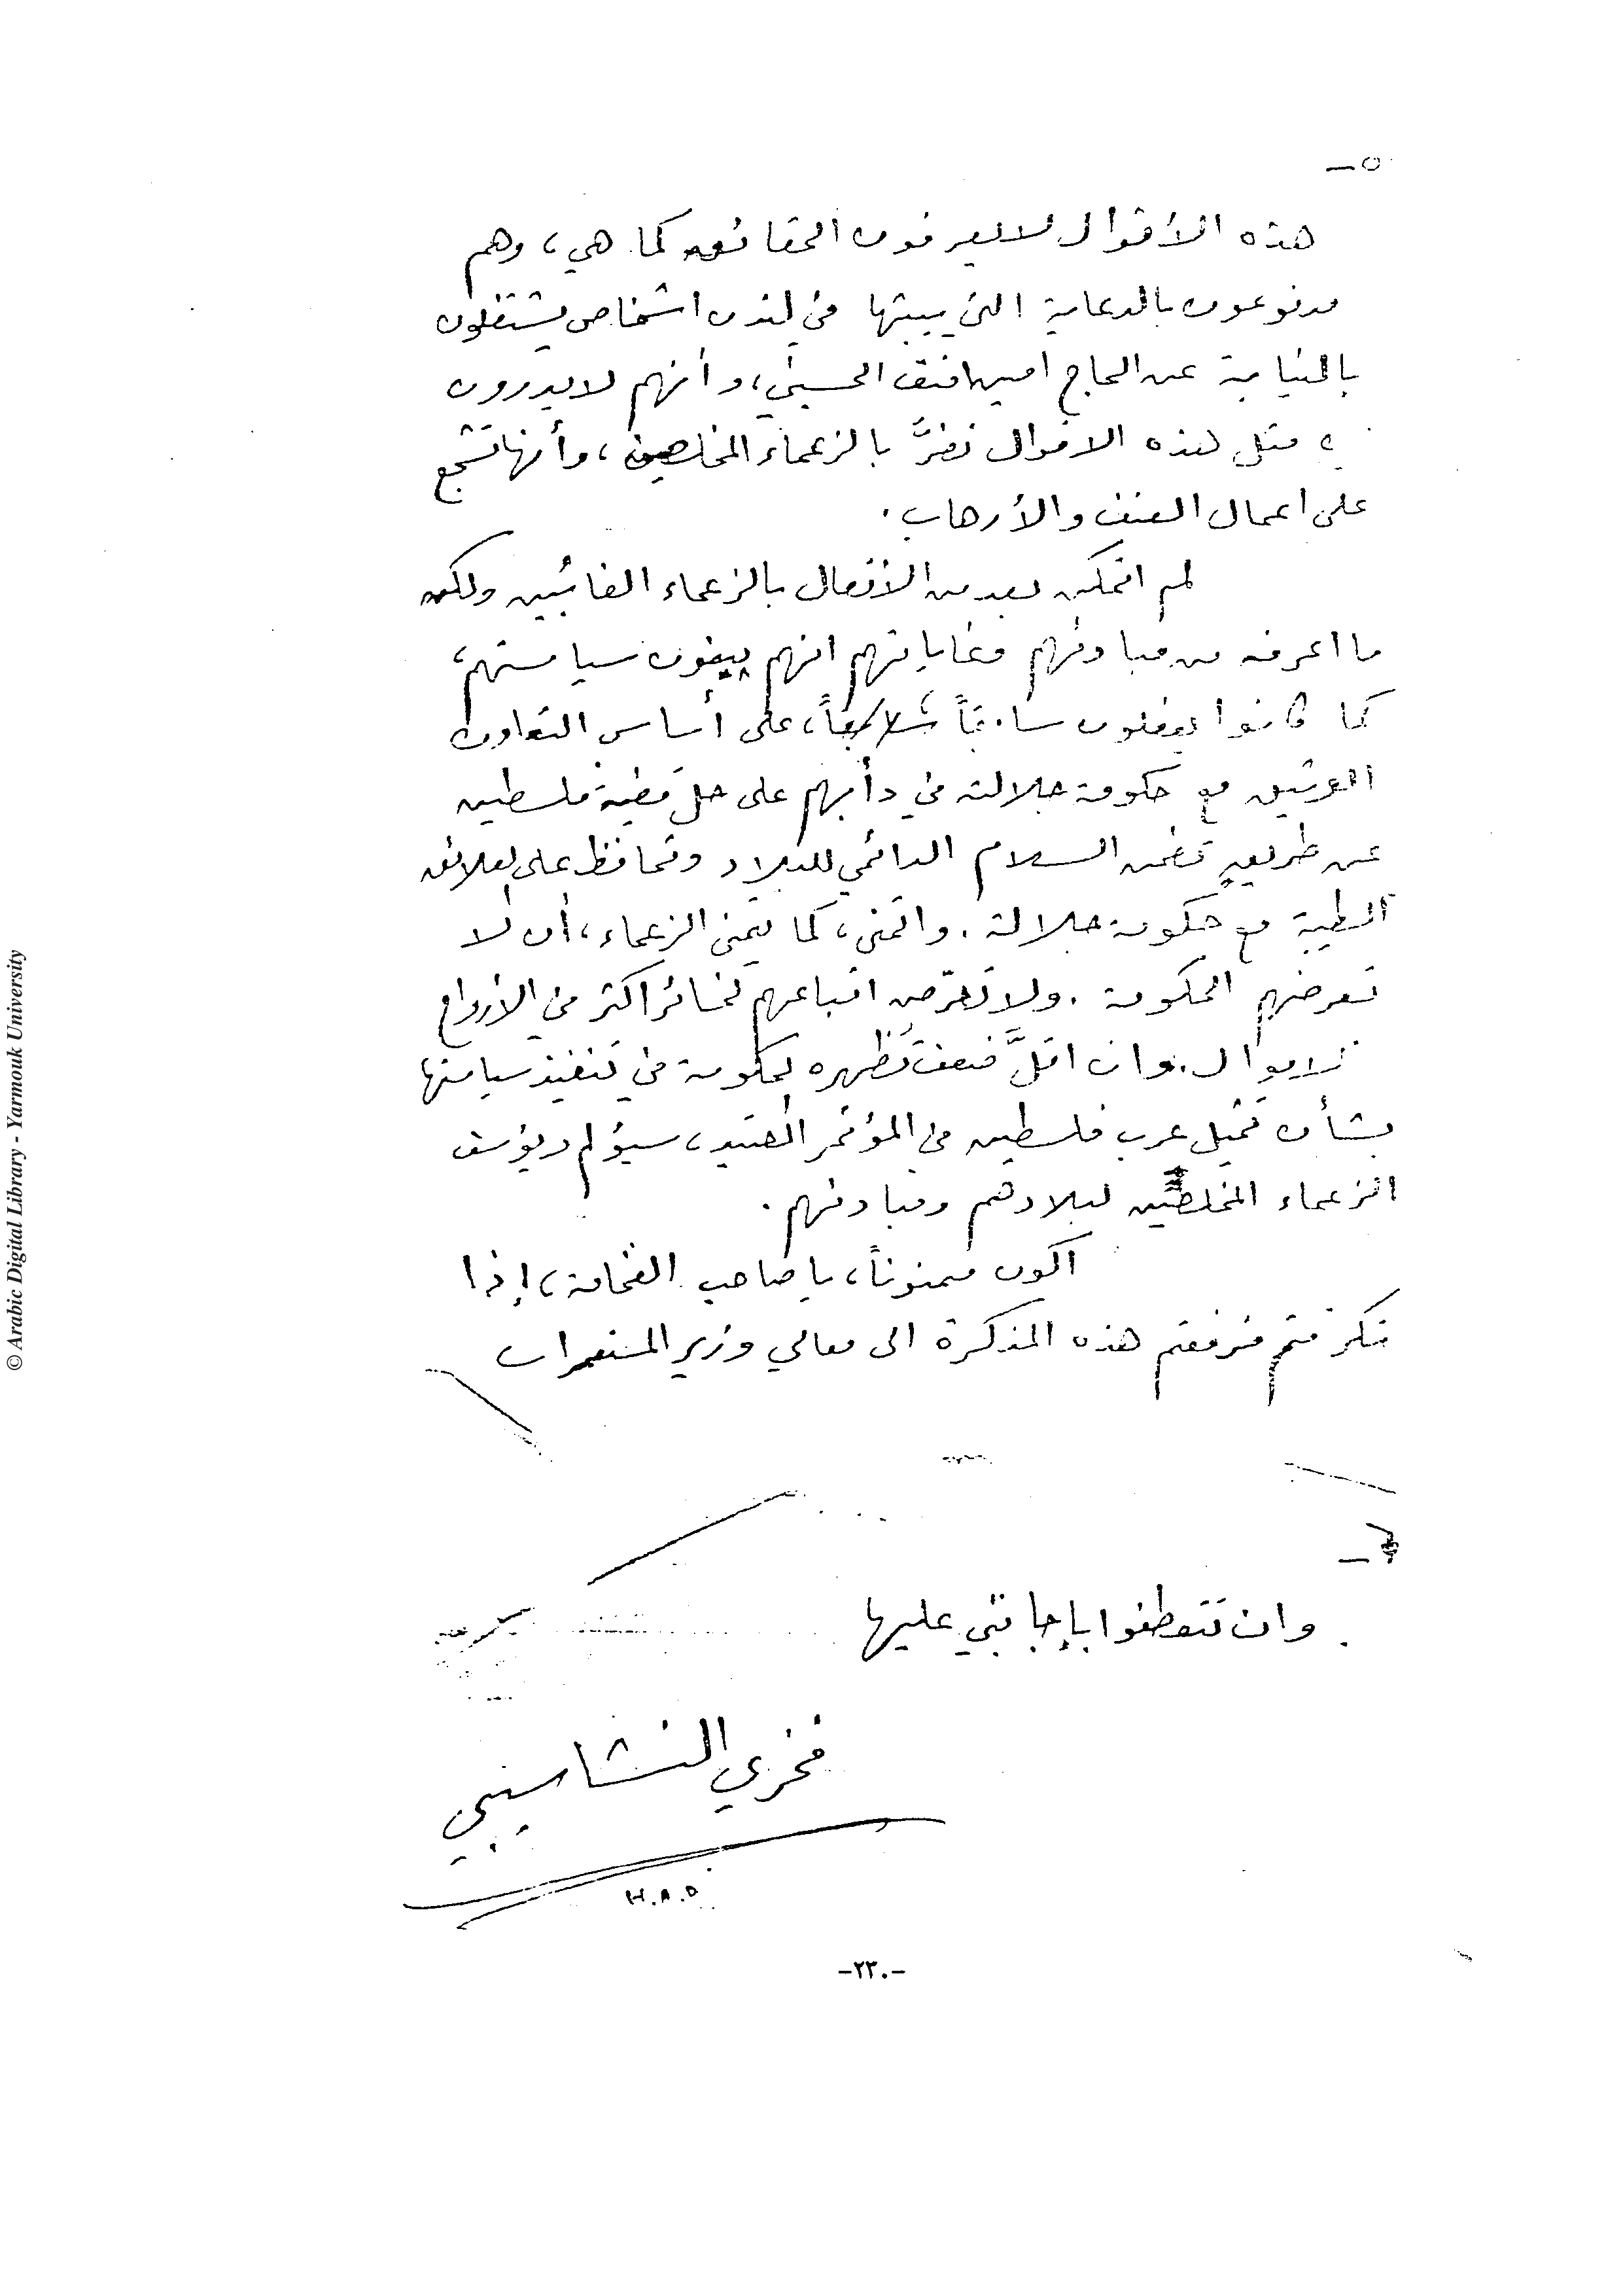 ٥ –
هذه الأقوال لا يعرفون الحقائق كما هي، وهم
مدفوعون بالدعاية التي يبثها في لندن اشخاص يشتغلون
بالنيابة عن الحاج امين افندي الحسيني، وأنهم لا يدرون
مثل هذه الاقوال تضرّ بالزعماء المخلصين، وأنها تشجع
على اعمال العنف والأرهاب.
لم اتمكن بعد من الأتصال بالزعماء الغائبين ولكن
ما اعرفه من مبادئهم وغاياتهم انهم يبنون سياستهم،
كما كانوا يفعلون سابقاً، على أساس التعاون
الوثيق مع حكومة جلالته في دأبهم على حل قضية فلسطين
عن طريقٍ تضمن السلام الدائمي للبلاد وتحافظ على العلائق
الطيبة مع حكومة جلالته. واتمنى، كما يتمنى الزعماء، أن لا
تعرضهم الحكومة. ولا تعرّض اتباعهم لخسائر اكثر في الأرواح
والاموال. وان اقلَّ ضعف تُظهره الحكومة في تنفيذ سياستها
بشأن تمثيل عرب فلسطين في المؤتمر العتيد، سيؤلم ويؤسف
الزعماء المخلصين لبلادهم ومبادئهم.
اكون ممنوناً، يا صاحب الفخامة، إذا
تكرمتم فرفعتم هذه المذكرة الى معالي وزير المستعمرات
٦ –
وان تتعطفوا بإجابتي عليها
فخري النشاشيبي
-٢٣٠-
© Arabic Digital Library - Yarmouk University